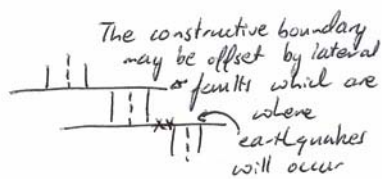 The constructive boundary
may be offset by lateral
faults which are
where
earthquakes
will occur